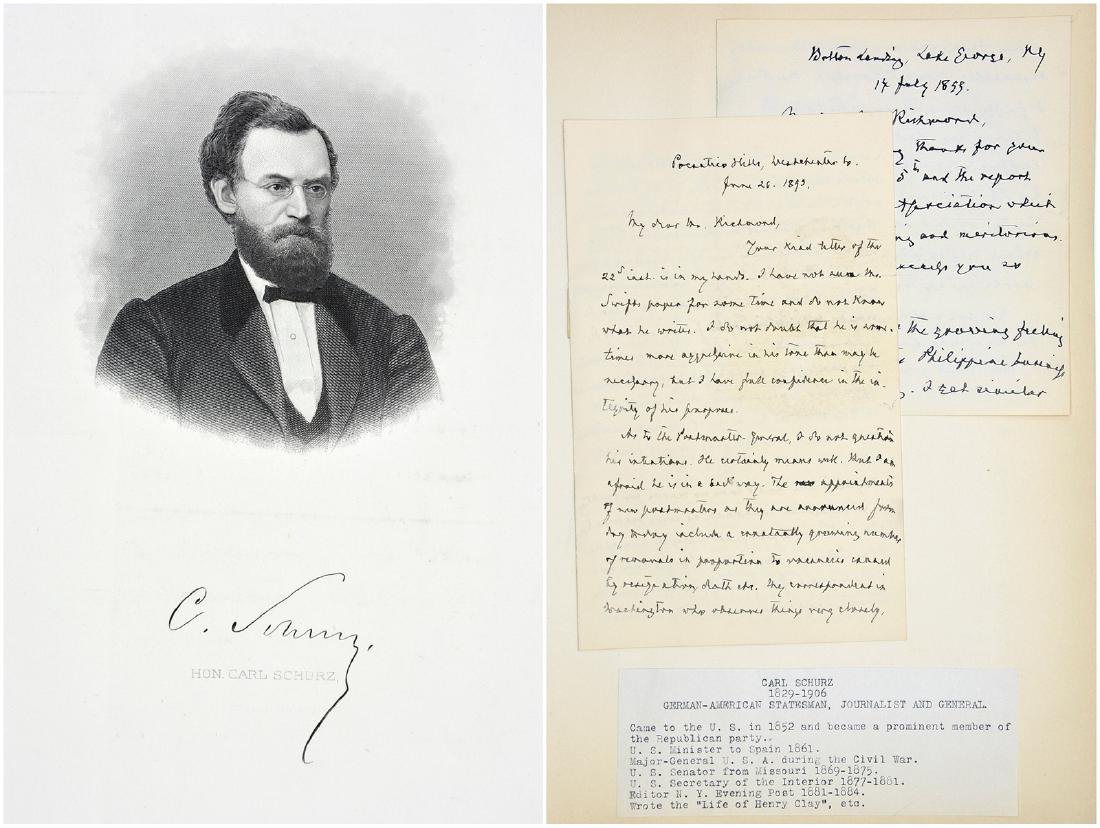 C. Schurz.
HON. CARL SCHURZ.
Bolton Landing, Lake George, NY
14 July 1899.
Richmond,
thanks for your
5th and the report
appreciation which
and meritorious
you so
the growing feeling
Philippine business
. I get similar
Pocantico Hills, Westchester Co.
June 26. 1893.
My dear Mr. Richmond,
Your kind letter of the
22d inst. is in my hands. I have not seen the
Swift's paper for some time and do not know
what he writes. I do not doubt that he is some-
times more aggressive in his tone than may be
necessary, but I have full confidence in the in-
tegrity of his purposes.
As to the Postmaster-General, I do not question
his intentions. He certainly means well. But I am
afraid he is in a bad way. The appointments
of new postmasters as they are announced from
day to day include a constantly growing number
of removals in proportion to vacancies caused
by resignation, death etc. My correspondent in
Washington who observes things very closely,
CARL SCHURZ
1829-1906
GERMAN-AMERICAN STATESMAN, JOURNALIST AND GENERAL.
Came to the U. S. in 1852 and became a prominent member of
the Republican party..
U. S. Minister to Spain 1861.
Major-General U. S. A. during the Civil War.
U. S. Senator from Missouri 1869-1875.
U. S. Secretary of the Interior 1877-1881.
Editor N. Y. Evening Post 1881-1884.
Wrote the "Life of Henry Clay", etc.